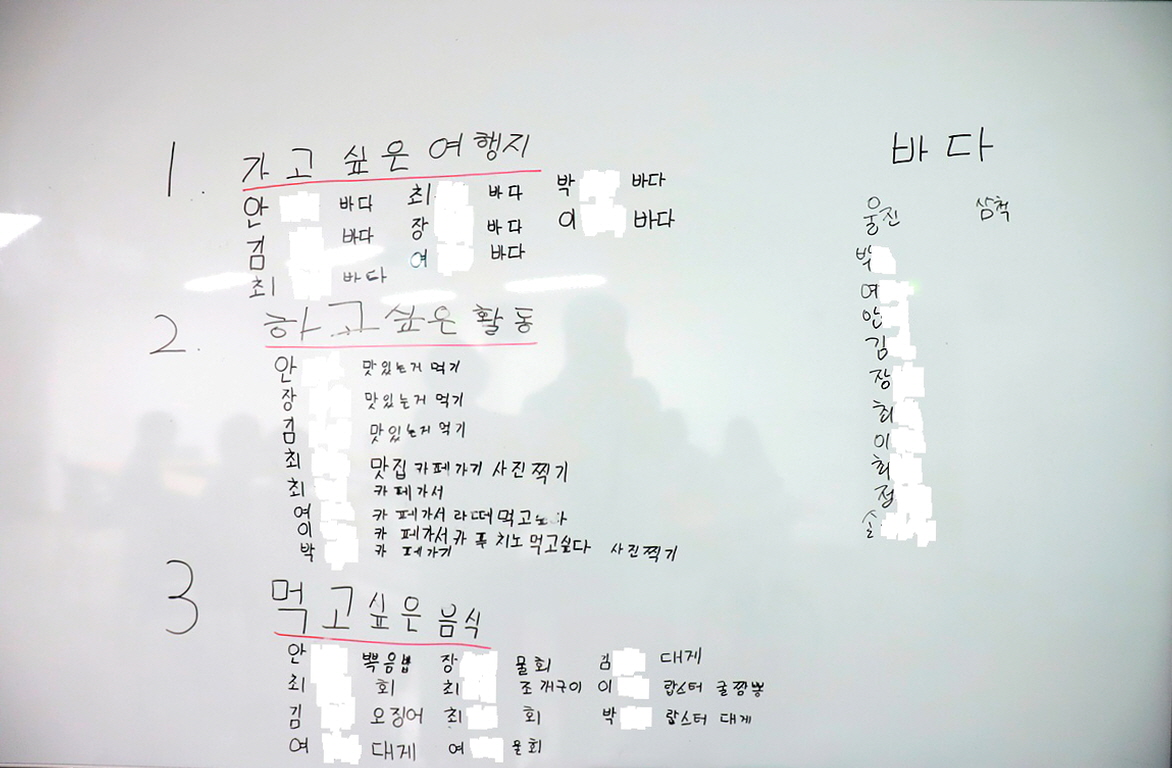 1. 가고 싶은 여행지
안 바다 최 바다 박 바다
김 바다 장 바다 이 바다
최 바다 여 바다
2. 하고싶은 활동
안 맛있는거 먹기
장 맛있는거 먹기
김 맛있는거 먹기
최 맛집 카페가기 사진찍기
최 카페가서
여 카페가서 라떼먹고
이 카페가서 카푸치노 먹고싶다
박 카페가기 사진찍기
3 먹고싶은 음식
안 볶음밥 장 물회 김 대게
최 회 최 조개구이 이 랍스터 굴짬뽕
김 오징어 최 회 박 랍스터 대게
여 대게 여 물회
바다
울진 삼척
박
여
안
김
장
최
이
최
정